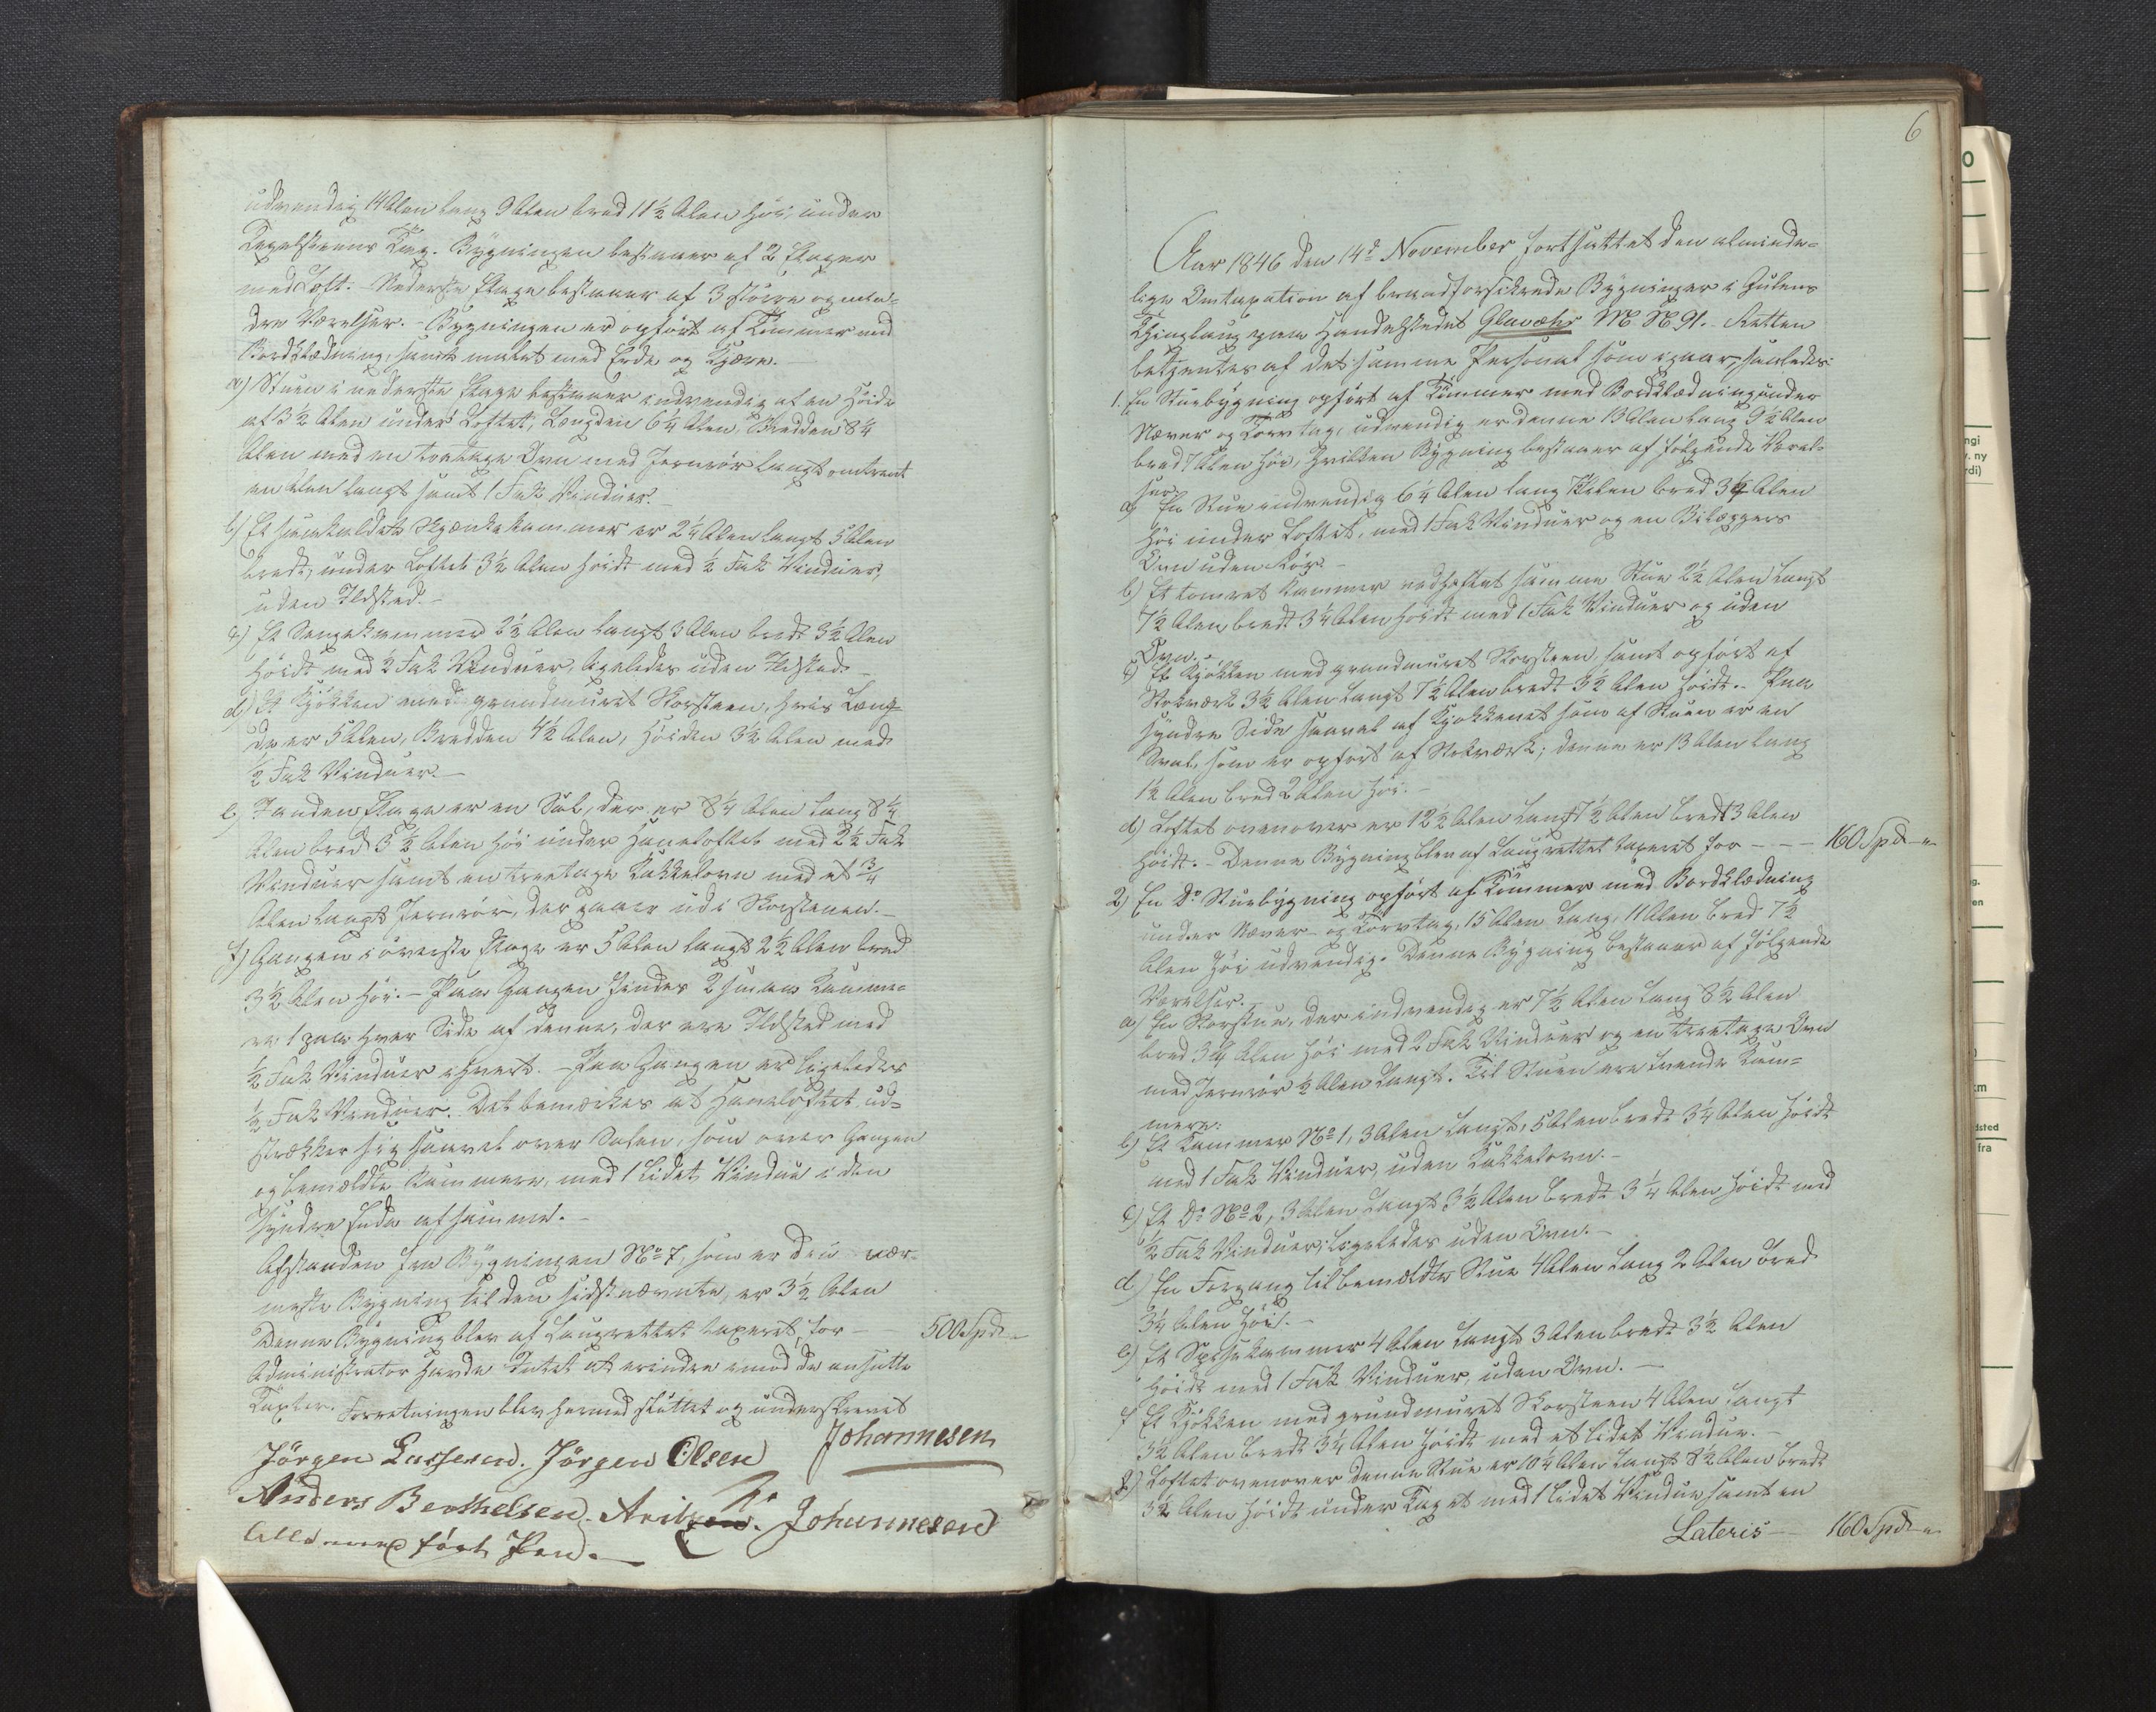 udvendig 14 Alen lang 9 Alen bred 11½ Alen høi, under
Tagelsteens Tag. Bygningen bestaaer af 2 Etager
med Loft. Nederste Etage bestaaer af 3 større og min-
dre Værelser. - Bygningen er opført af Tømmer med
Bordklædning, samt malet med Erde og Tjære. -
a) Stuen i nederste Etage bestaaer indvendig af en Høide
af 3½ Alen under Loftet, Længden 6¼ Alen, Bredden 8¼
Alen med en toetages Ovn med Jernrør langt omtrent
en Alen langt samt 1 Fak Vinduer. -
b) Et saakaldet Skjænkekammer er 2¼ Alen langt 5 Alen
bredt, under Loftet 3½ Alen høidt med ½ Fak Vinduer,
uden Ildsted. -
c) Et Sengekammer 2½ Alen langt 3 Alen bredt 3½ Alen
høidt med ½ Fak Vinduer, ligeledes uden Ildsted -
d) Et Kjøkken med grundmuret Skorsteen, hvis Læng-
de er 5 Alen, Bredden 4½ Alen, Høiden 3½ Alen med
½ Fak Vinduer. -
e) I anden Etage er en Sal, der er 8¼ Alen lang 8¼
Alen bred 3½ Alen høi under Haneloftet med 2½ Fak
Vinduer samt en treetages Kakkelovn med et ¾
Alen langt Jernrør, der gaaer ud i Skorstenen. -
f) Gangen i øverste Etage er 5 Alen langt 2½ Alen bred
3½ Alen høi. - Paa Gangen findes 2 smaae Kamme-
re 1 paa hver Side af denne, der ere Ildsted med
½ Fak Vinduer i hvert. - Paa Gangen er ligeledes
½ Fak Vinduer. Det bemærkes at Haneloftet ud-
strækker sig saavel over Salen, som over Gangen
og bemeldte Kammere, med 1 lidet Vindue i den
Søndre Ende af samme. -
Afstanden fra Bygningen No 7, som er den nær-
meste Bygning til den sidstnævnte, er 3½ Alen
Denne Bygning blev af Laugrettet taxeret for - 500 Spd -
Administrator havde Intet at erindre imod de ansatte
Taxter. Forretningen blev hermed sluttet og underskrevet
Johannesen
Jörgen Lassesen. Jörgen Olsen
Anders Berthelsen. Johannesen
Alle med ført Pen. -
6
Aar 1846 den 14d November fortsattet den alminde-
lige Omtaxation af brandforsikrede Bygninger i Gulens
Thinglaug paa Handelstedet Glavæhr M. N. 91. - Retten
betjentes af det samme Personal som igaar, saaledes:
1. En Stuebygning opført af Tømmer med Bordklædning under
Næver og Torvtag, udvendig er denne 13 Alen lang 9½ Alen
bred 7 Alen høi, hvilken Bygning bestaaer af følgende Værel-
ser.
a) En Stue indvendig 6¼ Alen lang 7 Alen bred 3¼ Alen
høi under Loftet, med 1 Fak Vinduer og en Bilæggers
Ovn uden Rør. -
b) Et tomret Kammer vedheftet samme Stue 2½ Alen langt
7½ Alen bredt 3¼ Alen høidt med 1 Fak Vinduer og uden
Ovn. -
c) Et Kjøkken med grundmuret Skorsteen samt opført af
Stokværk 3½ Alen langt 7½ Alen bredt 3½ Alen høidt. - Paa
Søndre Side saavel af Kjøkkenet som af Stuen er en
Sval, som er opført af Stokværk; denne er 13 Alen lang
1½ Alen bred 2 Alen høi. -
d) Loftet ovenover er 12½ Alen langt 7½ Alen bredt 3 Alen
høidt. - Denne Bygning blev af Laugrettet taxeret for - - - 160 Spd -
2) En Do Stuebygning opført af Tømmer med Bordklædning
under Næver- og Torvtag, 15 Alen lang, 11 Alen bred 7½
Alen høi udvendig. Denne Bygning bestaaer af følgende
Værelser. -
a) En Storstue, der indvendig er 7½ Alen lang 8½ Alen
bred 3¼ Alen høi med 2 Fak Vinduer og en treetages Ovn
med Jernrør ½ Alen langt. Til Stuen ere tvende Kam-
mere:
b) Et Kammer No 1, 3 Alen langt, 5 Alen bredt 3¼ Alen høidt
med 1 Fak Vinduer, uden Kakkelovn. -
c) Et Do No 2, 3 Alen langt 3½ Alen bredt 3¼ Alen høidt med
½ Fak Vinduer; ligeledes uden Ovn. -
d) En Forgang til bemeldte Stue 4 Alen lang 2 Alen bred
3¼ Alen høi. -
e) Et Spisekammer 4 Alen langt 3 Alen bredt 3½ Alen
høidt med 1 Fak Vinduer, uden Ovn. -
f Et Kjøkken med grundmuret Skorsteen 4 Alen langt
3½ Alen bredt 3¼ Alen høidt med et lidet Vindue. -
g) Loftet ovenover denne Stue er 10¼ Alen langt 8½ Alen bredt
3½ Alen høidt under Taget med 1 lidet Vindue samt en
Lateris - 160 Spd -